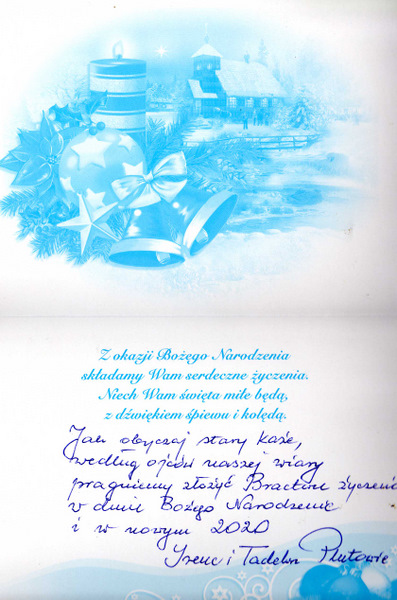 Z okazji Bożego Narodzenia
składamy Wam serdeczne życzenia.
Niech Wam święta miłe będą,
z dźwiękiem śpiewu i kolędą.
Jak obyczaj stary każe,
według ojców naszej wiary
pragniemy złożyć Bractwu życzenia
w dniu Bożego Narodzenia
i w nowym 2020
Irena i Tadeusz Plutowie